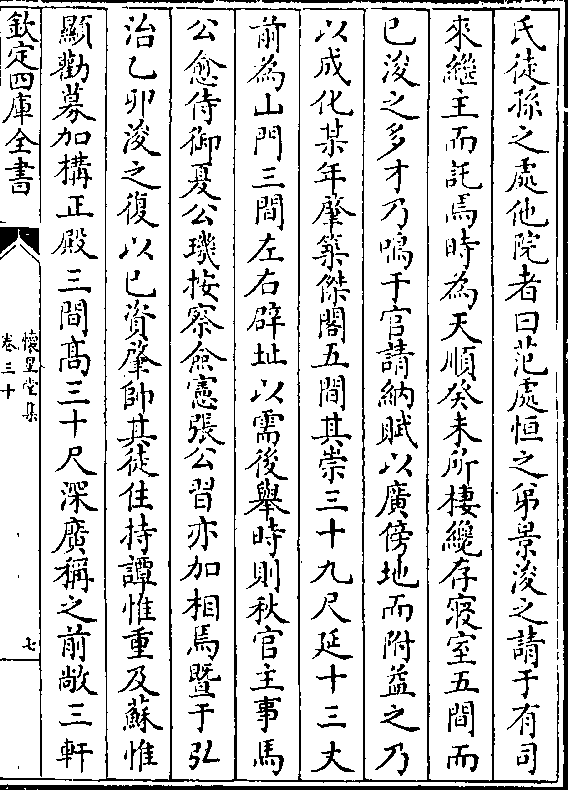 氏徒孫之處他院者曰范處恒之弟景浚之請于有司
來繼主而託焉時為天順癸未所棲纔存寢室五間而
已浚之多才乃鳴于官請納賦以廣傍地而附益之乃
以成化某年肇築傑閣五間其崇三十九尺延十三丈
前為山門三間左右辟址以需後舉時則秋官主事馬
公愈侍御夏公璣按察僉憲張公習亦加相焉暨于弘
治乙卯浚之復以已資肇帥其徒住持譚惟重及蘇惟
顯勸募加構正殿三間髙三十尺深廣稱之前敞三軒
欽定四庫全書
懷星堂集
卷三十
七